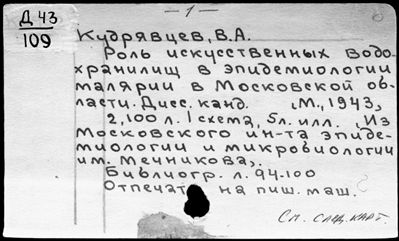 Д 43
109
— 1 —
Кудрявцев, В.А.
Роль искусственных водо-
хранилищ в эпидемиологии
малярии в Московской об-
ласти. Дисс. канд. М., 1943,
2, 100 л. 1 схема, 5 л. илл. Из
Московского ин-та эпиде-
миологии и микробиологии
им. Мечникова.
Библиогр. л. 94-100
Отпечат на пиш. маш.
См. след. карт.